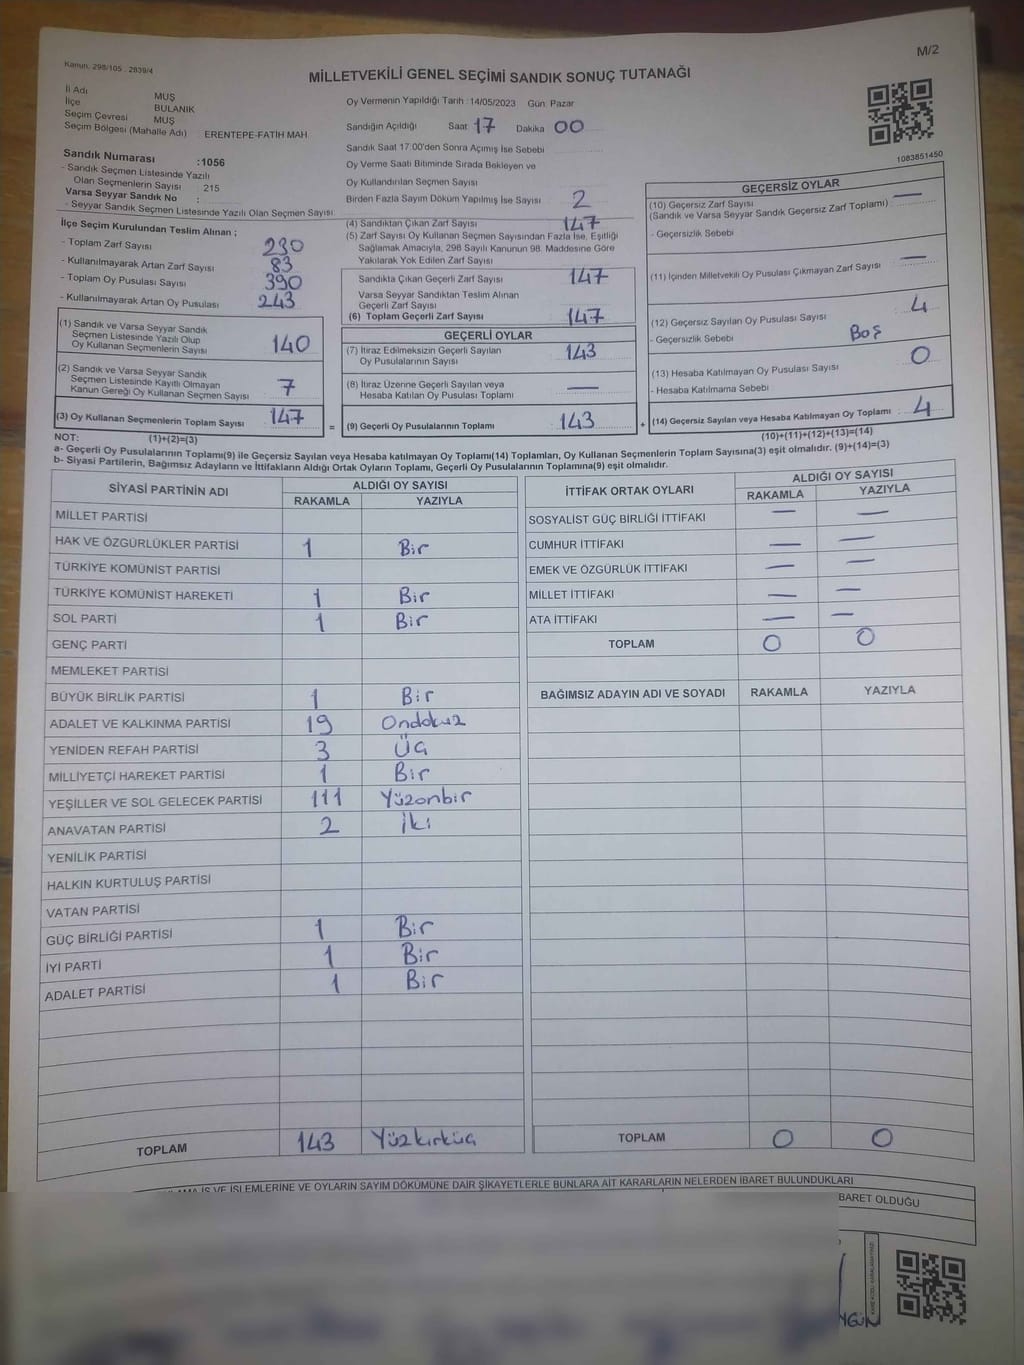 M/2
Kanun. 298/105 . 2839/4
MİLLETVEKİLİ GENEL SEÇİMİ SANDIK SONUÇ TUTANAĞI
İl Adı MUŞ
İlçe BULANIK
Seçim Çevresi MUŞ
Seçim Bölgesi (Mahalle Adı) : ERENTEPE-FATİH MAH.
Sandık Numarası :1056
- Sandık Seçmen Listesinde Yazılı
Olan Seçmenlerin Sayısı : 215
Varsa Seyyar Sandık No :
- Seyyar Sandık Seçmen Listesinde Yazılı Olan Seçmen Sayısı
Oy Vermenin Yapıldığı Tarih :14/05/2023 Gün: Pazar
Sandığın Açıldığı Saat 17 Dakika 00
Sandık Saat 17:00'den Sonra Açılmış İse Sebebi
Oy Verme Saati Bitiminde Sırada Bekleyen ve
Oy Kullandırılan Seçmen Sayısı
Birden Fazla Sayım Döküm Yapılmış İse Sayısı 2
1083851450
İlçe Seçim Kurulundan Teslim Alınan ;
- Toplam Zarf Sayısı 230
- Kullanılmayarak Artan Zarf Sayısı 83
- Toplam Oy Pusulası Sayısı 390
- Kullanılmayarak Artan Oy Pusulası 243
(1) Sandık ve Varsa Seyyar Sandık
Seçmen Listesinde Yazılı Olup
Oy Kullanan Seçmenlerin Sayısı 140
(2) Sandık ve Varsa Seyyar Sandık
Seçmen Listesinde Kayıtlı Olmayan
Kanun Gereği Oy Kullanan Seçmen Sayısı 7
(3) Oy Kullanan Seçmenlerin Toplam Sayısı 147 =
(4) Sandıktan Çıkan Zarf Sayısı 147
(5) Zarf Sayısı Oy Kullanan Seçmen Sayısından Fazla İse, Eşitliği
Sağlamak Amacıyla, 298 Sayılı Kanunun 98. Maddesine Göre
Yakılarak Yok Edilen Zarf Sayısı
Sandıkta Çıkan Geçerli Zarf Sayısı 147
Varsa Seyyar Sandıktan Teslim Alınan
Geçerli Zarf Sayısı
(6) Toplam Geçerli Zarf Sayısı 147
GEÇERLİ OYLAR
(7) İtiraz Edilmeksizin Geçerli Sayılan
Oy Pusulalarının Sayısı 143
(8) İtiraz Üzerine Geçerli Sayılan veya
Hesaba Katılan Oy Pusulası Toplamı —
(9) Geçerli Oy Pusulalarının Toplamı 143 +
GEÇERSİZ OYLAR
(10) Geçersiz Zarf Sayısı —
(Sandık ve Varsa Seyyar Sandık Geçersiz Zarf Toplamı) :
- Geçersizlik Sebebi
(11) İçinden Milletvekili Oy Pusulası Çıkmayan Zarf Sayısı —
(12) Geçersiz Sayılan Oy Pusulası Sayısı 4
- Geçersizlik Sebebi Boş
(13) Hesaba Katılmayan Oy Pusulası Sayısı 0
- Hesaba Katılmama Sebebi
(14) Geçersiz Sayılan veya Hesaba Katılmayan Oy Toplamı : 4
NOT: (1)+(2)=(3) (10)+(11)+(12)+(13)=(14)
a- Geçerli Oy Pusulalarının Toplamı(9) ile Geçersiz Sayılan veya Hesaba katılmayan Oy Toplamı(14) Toplamları, Oy Kullanan Seçmenlerin Toplam Sayısına(3) eşit olmalıdır. (9)+(14)=(3)
b- Siyasi Partilerin, Bağımsız Adayların ve İttifakların Aldığı Ortak Oyların Toplamı, Geçerli Oy Pusulalarının Toplamına(9) eşit olmalıdır.
SİYASİ PARTİNİN ADI ALDIĞI OY SAYISI
RAKAMLA YAZIYLA
MİLLET PARTİSİ
HAK VE ÖZGÜRLÜKLER PARTİSİ 1 Bir
TÜRKİYE KOMÜNİST PARTİSİ
TÜRKİYE KOMÜNİST HAREKETİ 1 Bir
SOL PARTİ 1 Bir
GENÇ PARTİ
MEMLEKET PARTİSİ
BÜYÜK BİRLİK PARTİSİ 1 Bir
ADALET VE KALKINMA PARTİSİ 19 Ondokuz
YENİDEN REFAH PARTİSİ 3 Üç
MİLLİYETÇİ HAREKET PARTİSİ 1 Bir
YEŞİLLER VE SOL GELECEK PARTİSİ 111 Yüzonbir
ANAVATAN PARTİSİ 2 İki
YENİLİK PARTİSİ
HALKIN KURTULUŞ PARTİSİ
VATAN PARTİSİ
GÜÇ BİRLİĞİ PARTİSİ 1 Bir
İYİ PARTİ 1 Bir
ADALET PARTİSİ 1 Bir
TOPLAM 143 Yüzkırküç
İTTİFAK ORTAK OYLARI ALDIĞI OY SAYISI
RAKAMLA YAZIYLA
SOSYALİST GÜÇ BİRLİĞİ İTTİFAKI — —
CUMHUR İTTİFAKI — —
EMEK VE ÖZGÜRLÜK İTTİFAKI — —
MİLLET İTTİFAKI — —
ATA İTTİFAKI — —
TOPLAM 0 0
BAĞIMSIZ ADAYIN ADI VE SOYADI RAKAMLA YAZIYLA
TOPLAM 0 0
İŞ VE İŞLEMLERİNE VE OYLARIN SAYIM DÖKÜMÜNE DAİR ŞİKAYETLERLE BUNLARA AİT KARARLARIN NELERDEN İBARET BULUNDUKLARI
BARET OLDUĞU